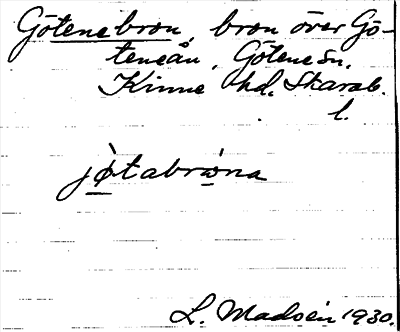 Götenebron, bron över Gö-
teneån, Götene sn.
Kinne hd. Skarab.
l.
jø̀tabrɷna
L. Madsén 1930.